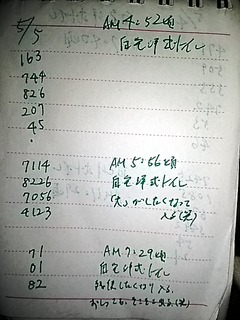 5/5 AM 4:52頃
自宅洋式トイレ
163
744
826
207
45
7114 AM 5:56頃
8226 自宅洋式トイレ
7056
4123
71 AM 7:29頃
01 自宅洋式トイレ
82